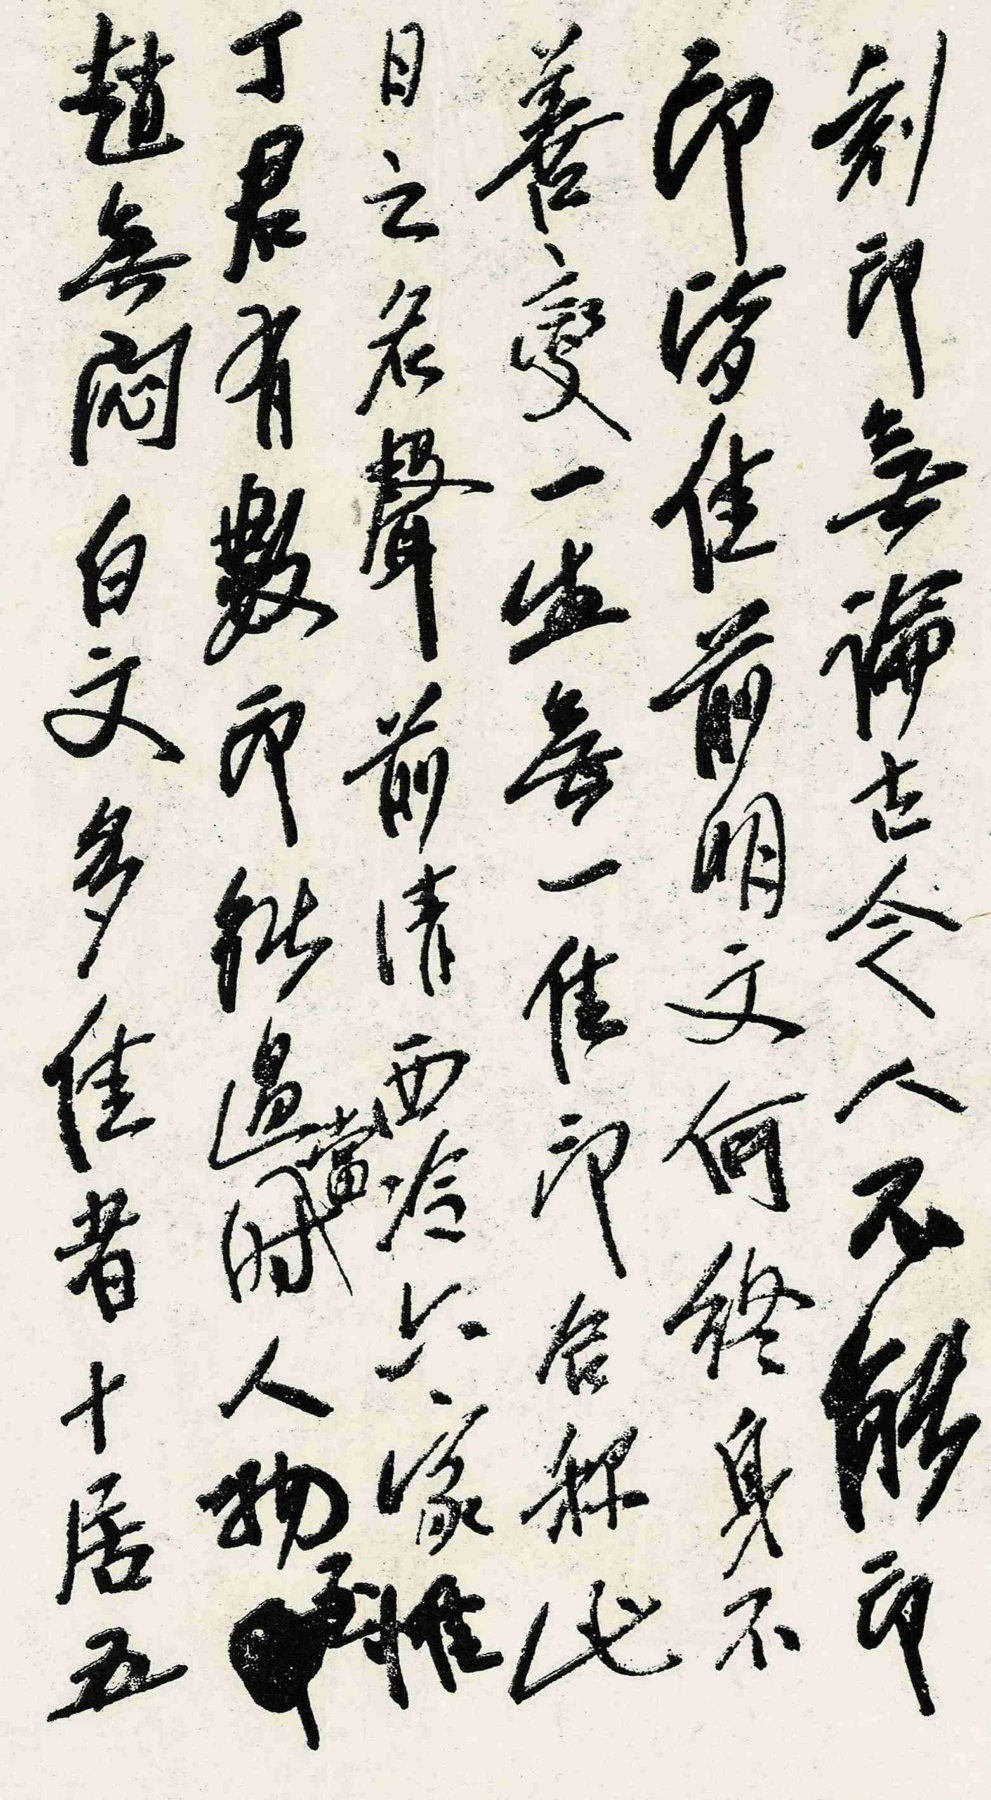 刻印無論古今人不能印
印皆佳前明文何終身不
善變一生無一佳印合稱他
日之名聲前清西泠六家惟
丁君有數印能過當時人物至
趙無悶白文多佳者十居五